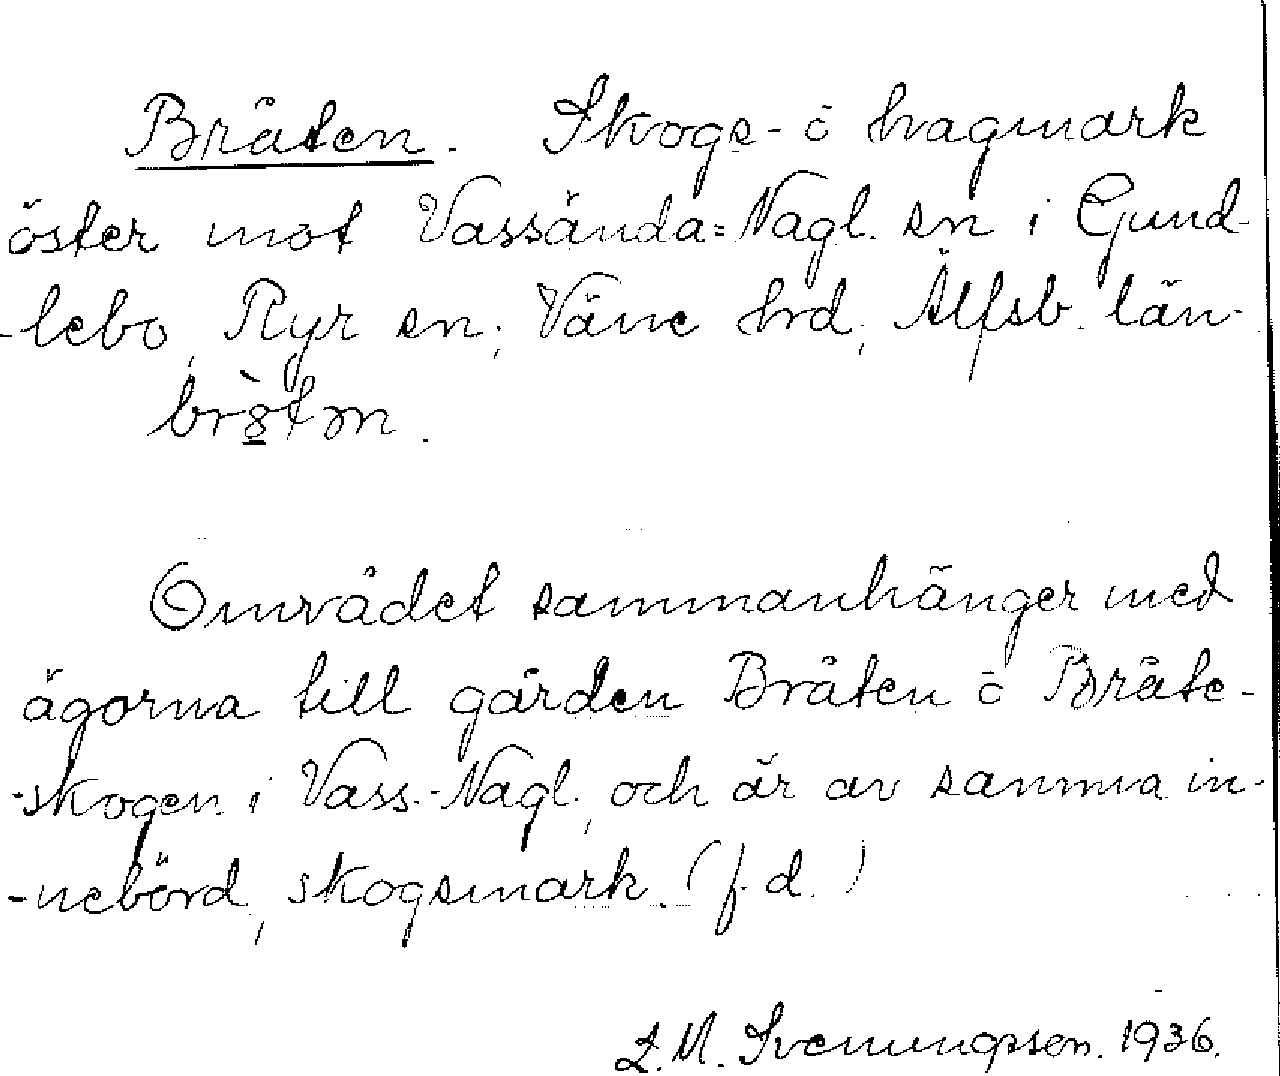 Bråten. Skogs- ō hagmark
öster mot Vassända=Nagl. sn i Gund-
-lebo, Ryr sn, Väne hrd, Älfsb. län.
Området sammanhänger med
ägorna till gården Bråten ō Bråte-
-skogen i Vass.-Nagl., och är av samma in-
-nebörd, skogsmark. (f. d.)
L. M. Svenungsson. 1936.